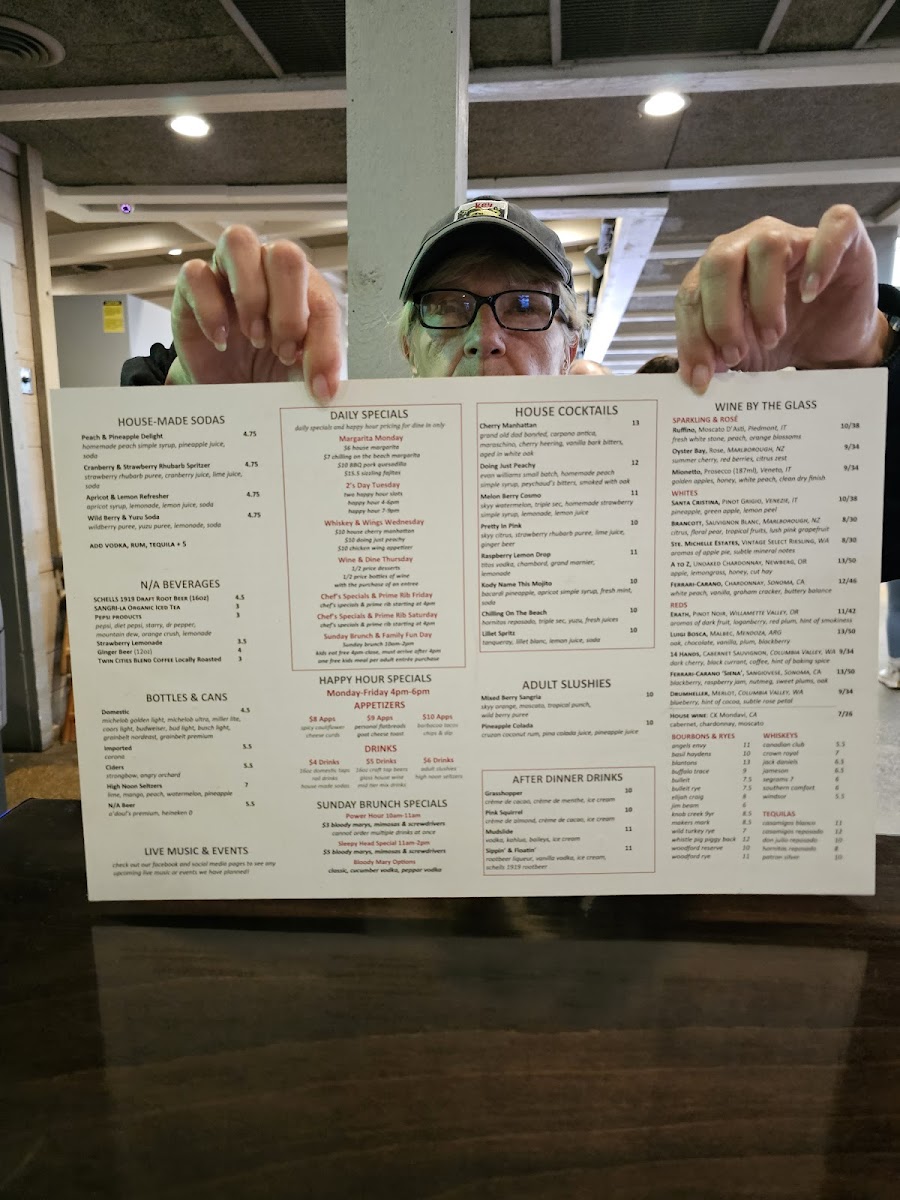 HOUSE-MADE SODAS
Peach & Pineapple Delight 4.75
homemade peach simple syrup, pineapple juice,
soda
Cranberry & Strawberry Rhubarb Spritzer 4.75
strawberry rhubarb puree, cranberry juice, lime juice,
soda
Apricot & Lemon Refresher 4.75
apricot syrup, lemonade, lemon juice, soda
Wild Berry & Yuzu Soda 4.75
wildberry puree, yuzu puree, lemonade, soda
ADD VODKA, RUM, TEQUILA + 5
N/A BEVERAGES
SCHELLS 1919 DRAFT ROOT BEER (16oz) 4.5
SANGRI-LA ORGANIC ICED TEA 3
PEPSI PRODUCTS 3
pepsi, diet pepsi, starry, dr pepper,
mountain dew, orange crush, lemonade
STRAWBERRY LEMONADE 3.5
GINGER BEER (12oz) 4
TWIN CITIES BLEND COFFEE LOCALLY ROASTED 3
BOTTLES & CANS
Domestic 4.5
michelob golden light, michelob ultra, miller lite,
coors light, budweiser, bud light, busch light,
grainbelt nordeast, grainbelt premium
Imported 5.5
corona
Ciders 5.5
strongbow, angry orchard
High Noon Seltzers 7
lime, mango, peach, watermelon, pineapple
N/A Beer 5.5
o'doul's premium, heineken 0
LIVE MUSIC & EVENTS
check out our facebook and social media pages to see any
upcoming live music or events we have planned!
DAILY SPECIALS
daily specials and happy hour pricing for dine in only
Margarita Monday
$6 house margarita
$7 chilling on the beach margarita
$10 BBQ pork quesadilla
$15.5 sizzling fajitas
2's Day Tuesday
two happy hour slots
happy hour 4-6pm
happy hour 7-9pm
Whiskey & Wings Wednesday
$10 house cherry manhattan
$10 doing just peachy
$10 chicken wing appetizer
Wine & Dine Thursday
1/2 price desserts
1/2 price bottles of wine
with the purchase of an entree
Chef's Specials & Prime Rib Friday
chef's specials & prime rib starting at 4pm
Chef's Specials & Prime Rib Saturday
chef's specials & prime rib starting at 4pm
Sunday Brunch & Family Fun Day
Sunday brunch 10am-2pm
kids eat free 4pm-close, must arrive after 4pm
one free kids meal per adult entrée purchase
HAPPY HOUR SPECIALS
Monday-Friday 4pm-6pm
APPETIZERS
$8 Apps $9 Apps $10 Apps
spicy cauliflower personal flatbreads barbacoa tacos
cheese curds goat cheese toast chips & dip
DRINKS
$4 Drinks $5 Drinks $6 Drinks
16oz domestic taps 16oz craft tap beers adult slushies
rail drinks glass house wine high noon seltzers
house made sodas rail tier mix drinks
SUNDAY BRUNCH SPECIALS
Power Hour 10am-11am
$3 bloody marys, mimosas & screwdrivers
cannot order multiple drinks at once
Sleepy Head Special 11am-2pm
$5 bloody marys, mimosas & screwdrivers
Bloody Mary Options
classic, cucumber vodka, pepper vodka
HOUSE COCKTAILS
Cherry Manhattan 13
grand old dad bonded, carpano antica,
maraschino, cherry heering, vanilla bark bitters,
aged in white oak
Doing Just Peachy 12
evan williams small batch, homemade peach
simple syrup, peychaud's bitters, smoked with oak
Melon Berry Cosmo 11
skyy watermelon, triple sec, homemade strawberry
simple syrup, lemonade, lemon juice
Pretty in Pink 10
skyy citrus, strawberry rhubarb puree, lime juice,
ginger beer
Raspberry Lemon Drop 11
titos vodka, chambord, grand marnier,
lemonade
Kody Name This Mojito 10
bacardi pineapple, apricot simple syrup, fresh mint,
soda
Chilling On The Beach 10
hornitos reposado, triple sec, yuzu, fresh juices
Lillet Spritz 10
tanqueray, lillet blanc, lemon juice, soda
ADULT SLUSHIES
Mixed Berry Sangria 10
skyy orange, moscato, tropical punch,
wild berry puree
Pineapple Colada 10
cruzan coconut rum, pina colada juice, pineapple juice
AFTER DINNER DRINKS
Grasshopper 10
crème de cacao, crème de menthe, ice cream
Pink Squirrel 10
crème de almond, crème de cacao, ice cream
Mudslide 11
vodka, kahlua, baileys, ice cream
Sippin' & Floatin' 11
rootbeer liqueur, vanilla vodka, ice cream,
schells 1919 rootbeer
WINE BY THE GLASS
SPARKLING & ROSÉ
RUFFINO, MOSCATO D'ASTI, PIEDMONT, IT 10/38
fresh white stone, peach, orange blossoms
OYSTER BAY, ROSE, MARLBOROUGH, NZ 9/34
summer cherry, red berries, citrus zest
MIONETTO, PROSECCO (187ml), VENETO, IT 9/34
golden apples, honey, white peach, clean dry finish
WHITES
SANTA CRISTINA, PINOT GRIGIO, VENEZIE, IT 10/38
pineapple, green apple, lemon peel
BRANCOTT, SAUVIGNON BLANC, MARLBOROUGH, NZ 8/30
citrus, floral pear, tropical fruits, lush pink grapefruit
STE. MICHELLE ESTATES, VINTAGE SELECT RIESLING, WA 8/30
aromas of apple pie, subtle mineral notes
A TO Z, UNOAKED CHARDONNAY, NEWBERG, OR 13/50
apple, lemongrass, honey, cut hay
FERRARI-CARANO, CHARDONNAY, SONOMA, CA 12/46
white peach, vanilla, graham cracker, buttery balance
REDS
ERATH, PINOT NOIR, WILLAMETTE VALLEY, OR 11/42
aromas of dark fruit, loganberry, red plum, hint of smokiness
LUIGI BOSCA, MALBEC, MENDOZA, ARG 13/50
oak, chocolate, vanilla, plum, blackberry
14 HANDS, CABERNET SAUVIGNON, COLUMBIA VALLEY, WA 9/34
dark cherry, black currant, coffee, hint of baking spice
FERRARI-CARANO 'SIENA', SANGIOVESE, SONOMA, CA 13/50
blackberry, raspberry jam, nutmeg, sweet plums, oak
DRUMHELLER, MERLOT, COLUMBIA VALLEY, WA 9/34
blueberry, hint of cocoa, subtle rose petal
HOUSE WINE: CK MONDAVI, CA 7/26
cabernet, chardonnay, moscato
BOURBONS & RYES
angels envy 11
basil haydens 10
blantons 13
buffalo trace 9
bulleit 7.5
bulleit rye 7.5
elijah craig 8
jim beam 6
knob creek 9yr 8.5
makers mark 8.5
wild turkey rye 7
whistle pig piggy back 12
woodford reserve 10
woodford rye 11
WHISKEYS
canadian club 5.5
crown royal 7
jack daniels 6.5
jameson 6.5
segrams 7 6
southern comfort 6
windsor 5.5
TEQUILAS
casamigos blanco 11
casamigos reposado 12
don julio reposado 10
hornitos reposado 8
patron silver 10